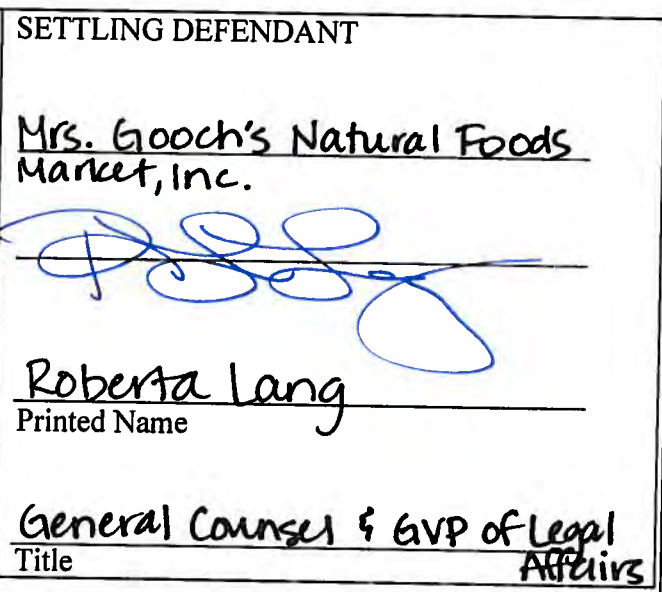 SETTLING DEFENDANT
Mrs. Gooch's Natural Foods
Market, Inc.
Roberta Lang
Printed Name
General Counsel & GVP of Legal
Affairs
Title